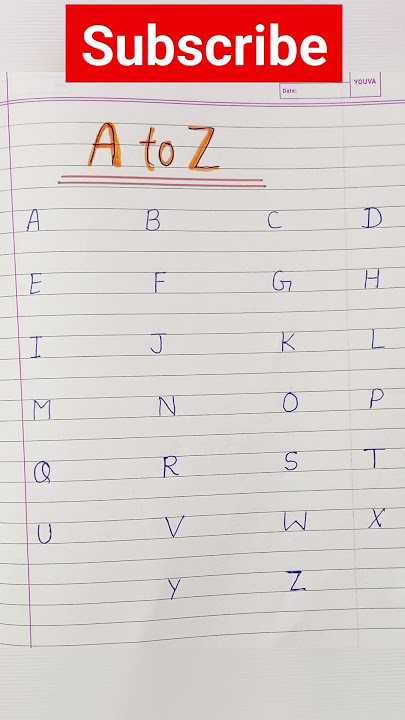 Subscribe
YOUVA
Date:
A to Z
A B C D
E F G H
I J K L
M N O P
Q R S T
U V W X
Y Z